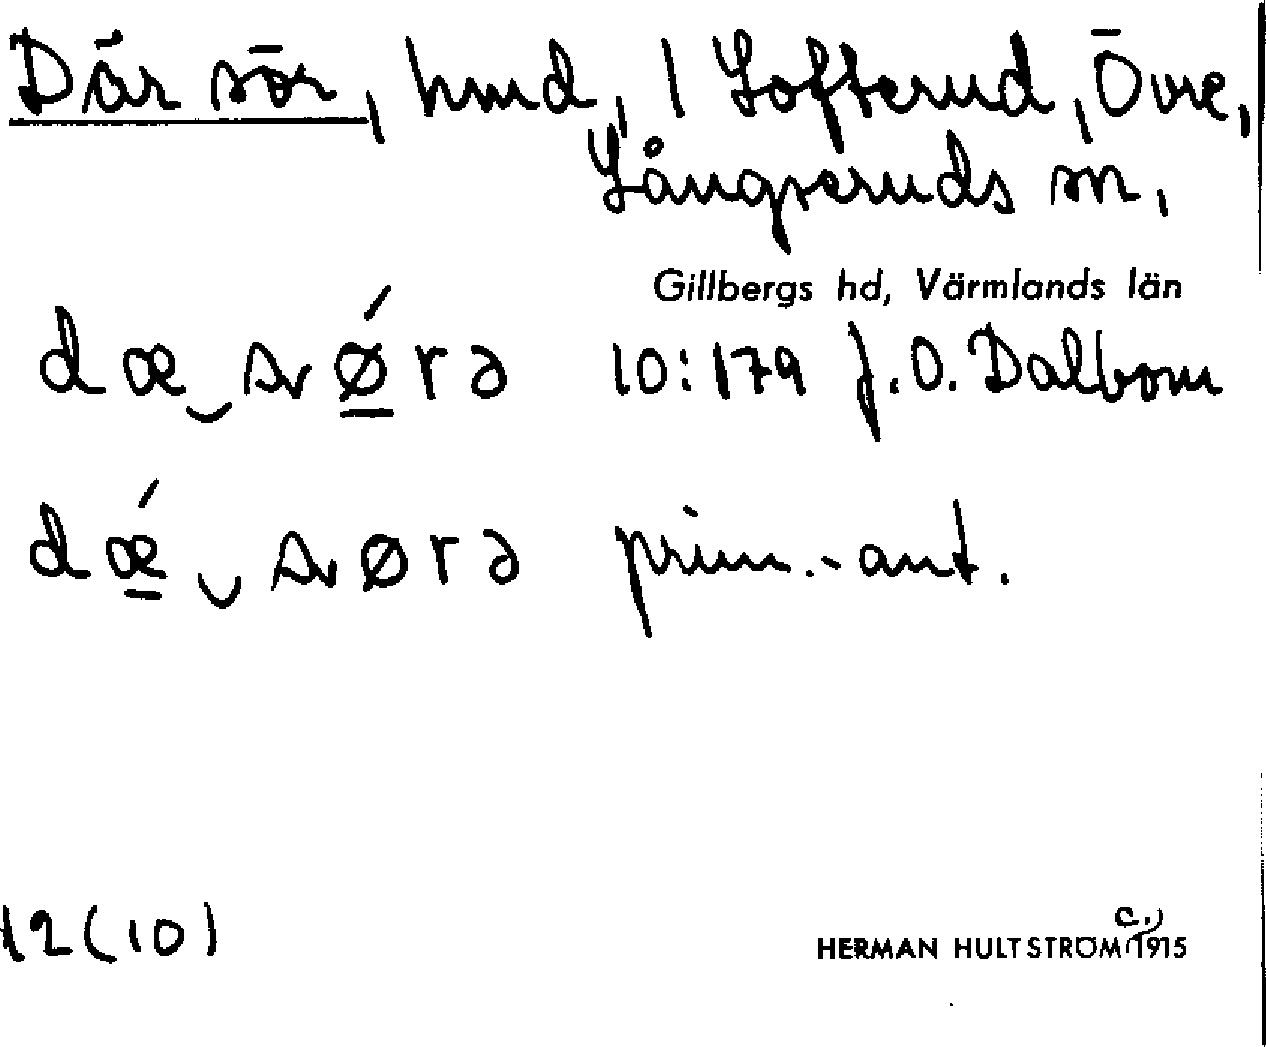 Där sör, hmd, 1 Lofterud, Övre,
Långseruds sn,
Gillbergs hd, Värmlands län
dæ‿sǿrə 10:179 J.O. Dalbom
dǽ‿sørə prim.-ant.
12(10) HERMAN HULTSTRÖM (c.) 1915